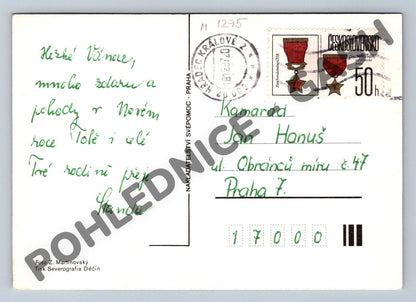 M 1275
HRADEC KRÁLOVÉ 2
ČESKOSLOVENSKO
50 h
Hezké Vánoce,
mnoho zdaru a
pohody v Novém
roce Tobě i celé
Tvé rodině přeje
Standa
NAKLADATELSTVÍ SVĚPOMOC - PRAHA
Kamarád
Jan Hanuš
ul. Obránců míru č. 47
Praha 7.
17000
Foto Z. Martinovský
Tisk Severografia Děčín
POHLEDNICE